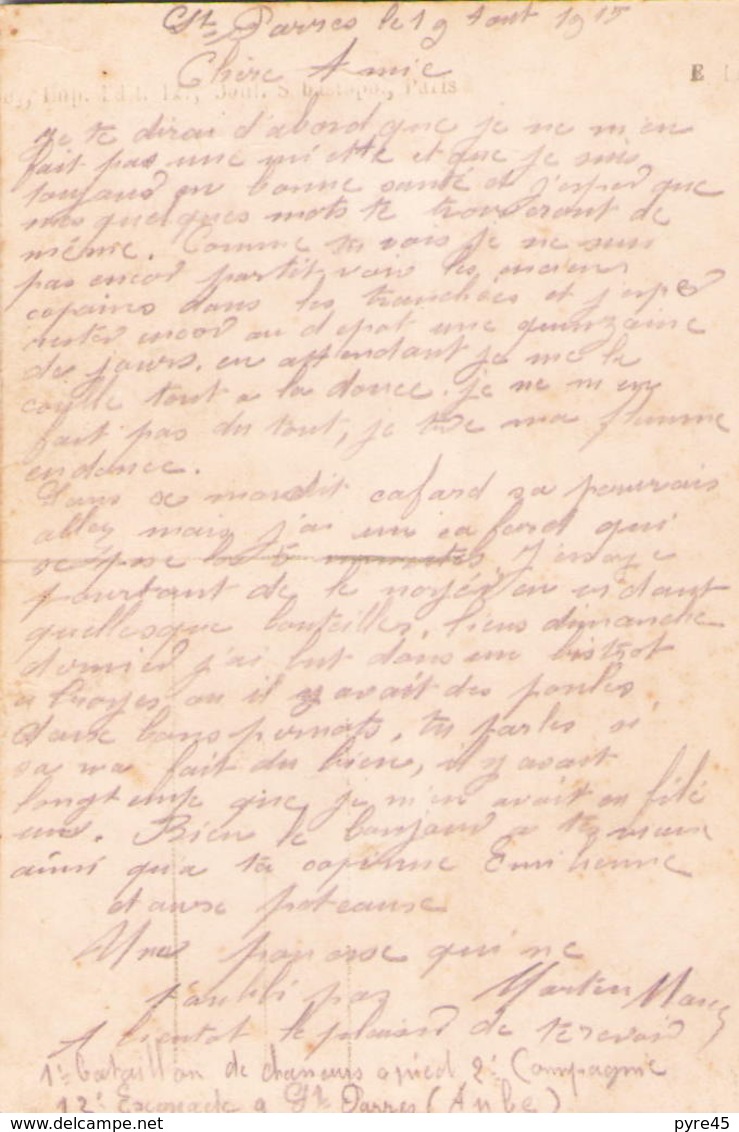 St Parres le 19 Aout 1915
Chère Amie
Je te dirai d'abord que je ne m'en
fait pas une miette et que je suis
toujours en bonne santé et j'esper que
mes quelques mots te trouveront de
même. Comme tu vois je ne suis
pas encor partit voir les anciens
copains dans les tranchées et j'esper
rester encor au depot une quinzaine
de jours. en attendant je me la
coulle tout a la douce. je ne m'en
fait pas du tout, je tire ma flemme
endouce.
Sans se maudit cafard sa pourrais
aller mais j'ai un cafard qui
5 minutes. J'essaye
pourtant de le noyer en vidant
quellesque bouteilles, tiens dimanche
dernier j'ai but dans un bistrot
a troyes ou il y avait des poules
deux bons pernots, tu parles si
sa ma fait du bien, il y avait
longtemps que je m'en avait filé
un. Bien le bonjour a tes
ainsi qu'a ta copinne Emilienne
et aux poteaux
Une qui ne
t'oubli pas Martin Marcel
A bientot le plaisir de te revoir
1e bataillon de chasseurs a pied 2e Compagnie
12e Escouade a Ste Parres (Aube)
Paris
E
pyre45